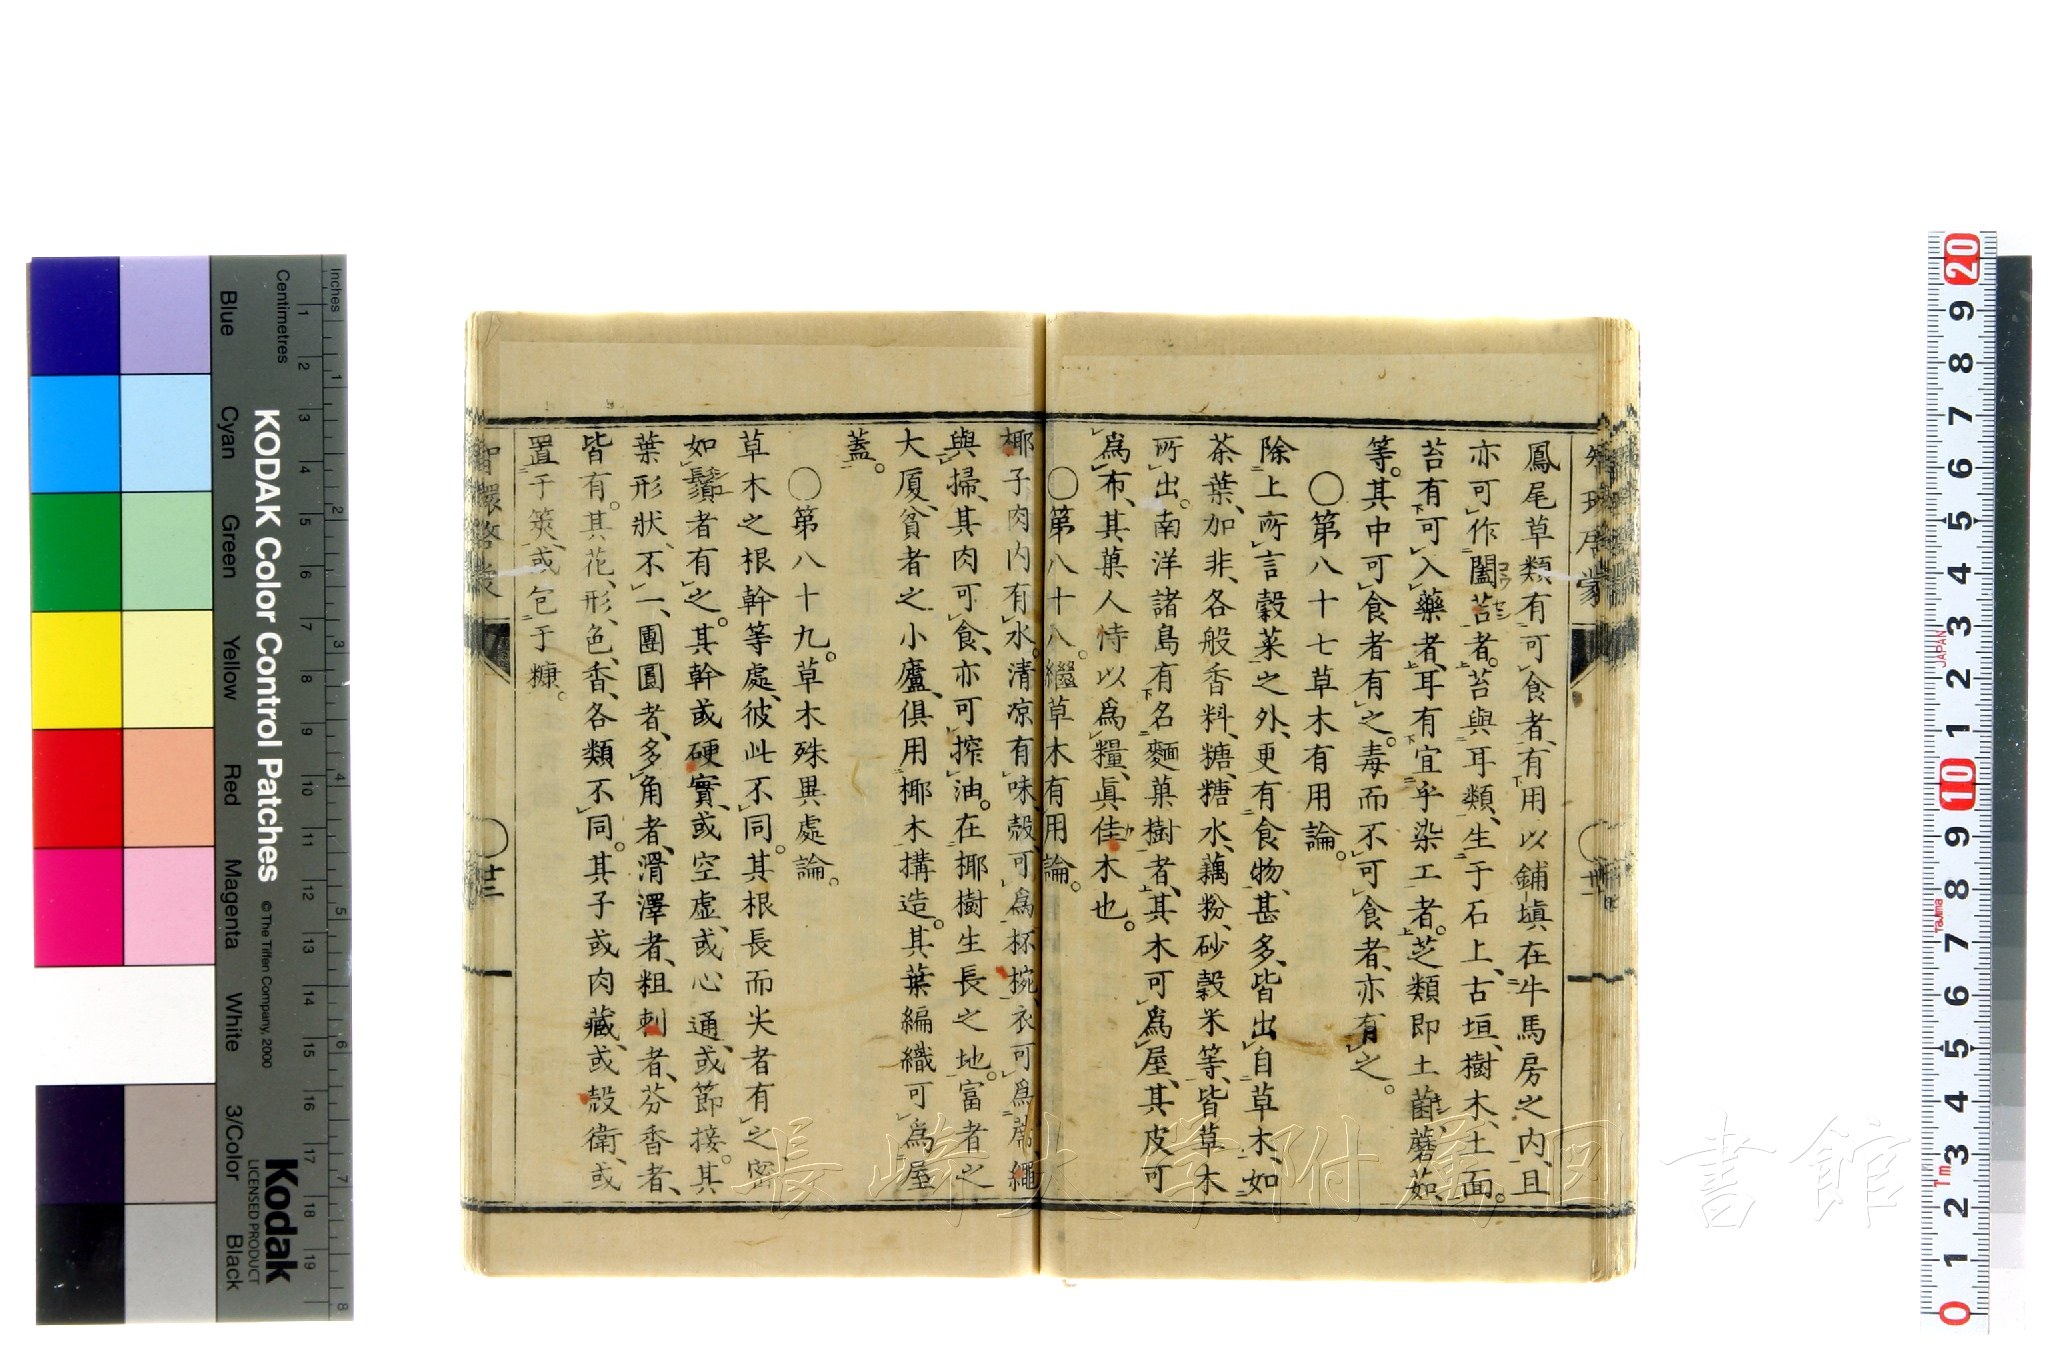 鳳尾草類有可食者、有用以鋪塡在牛馬房之内、且
亦可作闔苔者。苔與耳類、生于石上、古垣、樹木、土面。
苔有可入藥者、耳有宜乎染工者。芝類即土菌蘑茹、
等。其中可食者有之。毒而不可食者、亦有之。
〇第八十七草木有用論。
除上所言穀菜之外、更有食物、甚多、皆出自草木、如
茶葉、加非、各般香料、糖、糖水、藕粉、砂穀米等、皆草木
所出。南洋諸島有名麵菓樹者、其木可爲屋、其皮可
爲布、其菓人恃以爲糧、眞佳木也。
〇第八十八。繼草木有用論。
椰子肉内有水。清凉有味、殻可爲杯椀、衣可爲席繩
與掃、其肉可食、亦可搾油。在椰樹生長之地。富者之
大厦、貧者之小廬、俱用椰木搆造。其葉編織可爲屋
蓋。
〇第八十九。草木殊異處論。
草木之根幹等處、彼此不同。其根長而尖者有之、密
如鬚者有之。其幹或硬實、或空虚、或心通、或節接。其
葉形狀、不一、團圓者、多角者、滑澤者、粗刺者、芬香者、
皆有。其花、形、色、香、各類不同。其子或肉藏、或殻衛、或
置于筴、或包于糠。
智環啓蒙
〇廿三
長崎大学附属図書館
KODAK Color Control Patches
© The Tiffen Company, 2000
Kodak
LICENSED PRODUCT
Inches
Centimetres
Blue
Cyan
Green
Yellow
Red
Magenta
White
3/Color
Black
1 2 3 4 5 6 7 8 9 10 11 12 13 14 15 16 17 18 19
1 2 3 4 5 6 7 8
20 9 8 7 6 5 4 3 2 1 10 9 8 7 6 5 4 3 2 1 0
JAPAN
Tajima
Tm